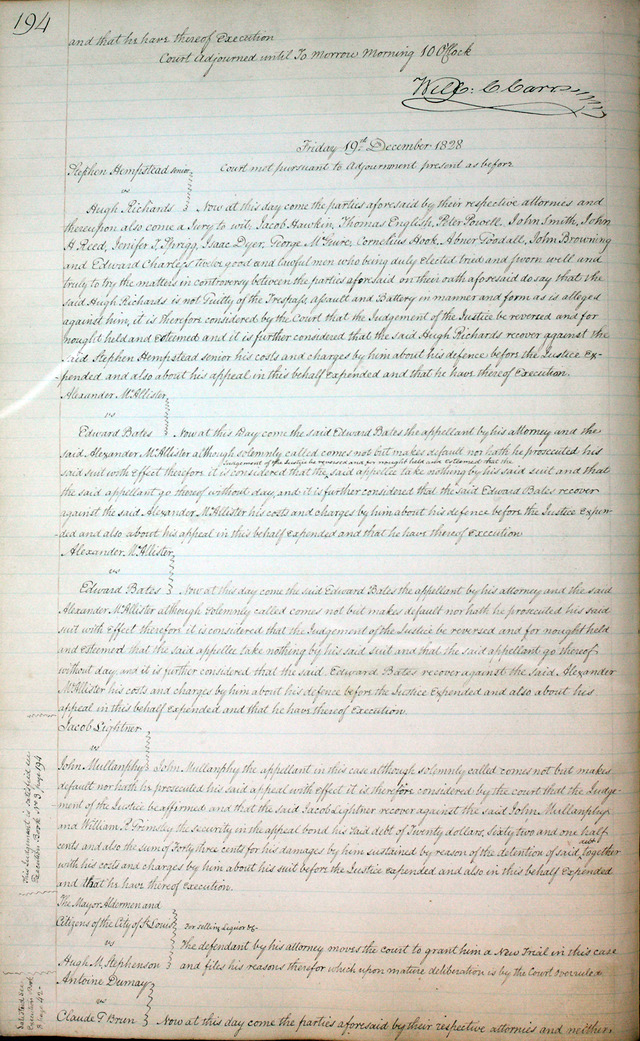 194
and that he have thereof Execution
Court Adjourned until To Morrow Morning 10 OClock
Will: C. Carr
Friday 19th December 1828
Court met pursuant to Adjournment present as before
Stephen Hempstead senior
vs
Hugh Richards } Now at this day come the parties aforesaid by their respective attornies and
thereupon also come a Jury to wit, Jacob Hawkin, Thomas English, Peter Powell, John Smith, John
H. Reed, Jenifer T. Sprigg, Isaac Dyer, George McGuire, Cornelius Hook, Abner Goodall, John Browning
and Edward Charless twelve good and lawful men who being duly elected tried and sworn well and
truly to try the matters in controversy between the parties aforesaid on their oath aforesaid do say that the
said Hugh Richards is not Guilty of the Trespass, assault and Battery in manner and form as is alleged
against him, it is therefore considered by the Court that the Judgement of the Justice be reversed and for
nought held and esteemed and it is further considered that the said Hugh Richards recover against the
said Stephen Hempstead senior his costs and charges by him about his defence before the Justice Ex-
-pended and also about his appeal in this behalf expended and that he have thereof Execution.
Alexander McAllister
vs
Edward Bates } Now at this Day come the said Edward Bates the appellant by his attorney and the
said Alexander McAllister although solemnly called comes not but makes default nor hath he prosecuted his
said suit with effect therefore it is considered that the
Judgement of the Justice be reversed and for nought held and esteemed that the
said appellee take nothing by his said suit and that
the said appellant go thereof without day, and it is further considered that the said Edward Bates recover
against the said Alexander McAllister his costs and charges by him about his defence before the Justice Expen-
-ded and also about his appeal in this behalf expended and that he have thereof Execution
Alexander McAllister
vs
Edward Bates } Now at this day come the said Edward Bates the appellant by his attorney and the said
Alexander McAllister although solemnly called comes not but makes default nor hath he prosecuted his said
suit with effect therefore it is considered that the Judgement of the Justice be reversed and for nought held
and esteemed that the said appellee take nothing by his said suit and that the said appellant go thereof
without day, and it is further considered that the said Edward Bates recover against the said Alexander
McAllister his costs and charges by him about his defence before the Justice Expended and also about his
appeal in this behalf expended and that he have thereof Execution.
Jacob Lightner
vs
John Mullanphy } John Mullanphy the appellant in this case although solemnly called comes not but makes
default nor hath he prosecuted his said appeal with effect it is therefore considered by the court that the Judge-
-ment of the Justice be affirmed and that the said Jacob Lightner recover against the said John Mullanphy
and William P. Grimsley the security in the appeal bond his said debt of Twenty dollars, sixty two and one half
cents and also the sum of Forty three cents for his damages by him sustained by reason of the detention of said debt together
with his costs and charges by him about his suit before the Justice expended and also in this behalf Expended
and that he have thereof Execution.
This Judgment is satisfied see
Execution Book No 3 page 194
The Mayor Aldermen and
Citizens of the City of St Louis } For selling liquor &c
vs
Hugh M. Stephenson } The defendant by his attorney moves the court to grant him a New Trial in this case
and files his reasons therefor which upon mature deliberation is by the Court overruled
Antoine Dumay
vs
Claude F. Brun } Now at this day come the parties aforesaid by their respective attornies and neither
Satisfied see
Execution Book
3 page 42